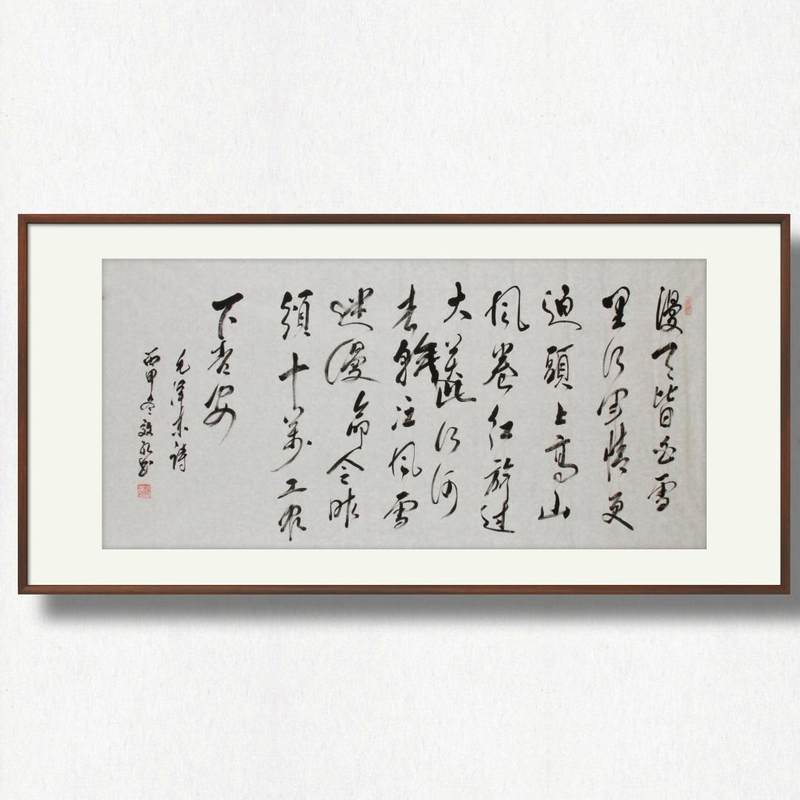 漫天皆白雪
里行军情更
迫頭上高山
风卷红旂过
大關此行何
去贛江风雪
迷漫命令昨
頒十萬工农
下吉安
毛泽东詩
丙申冬书